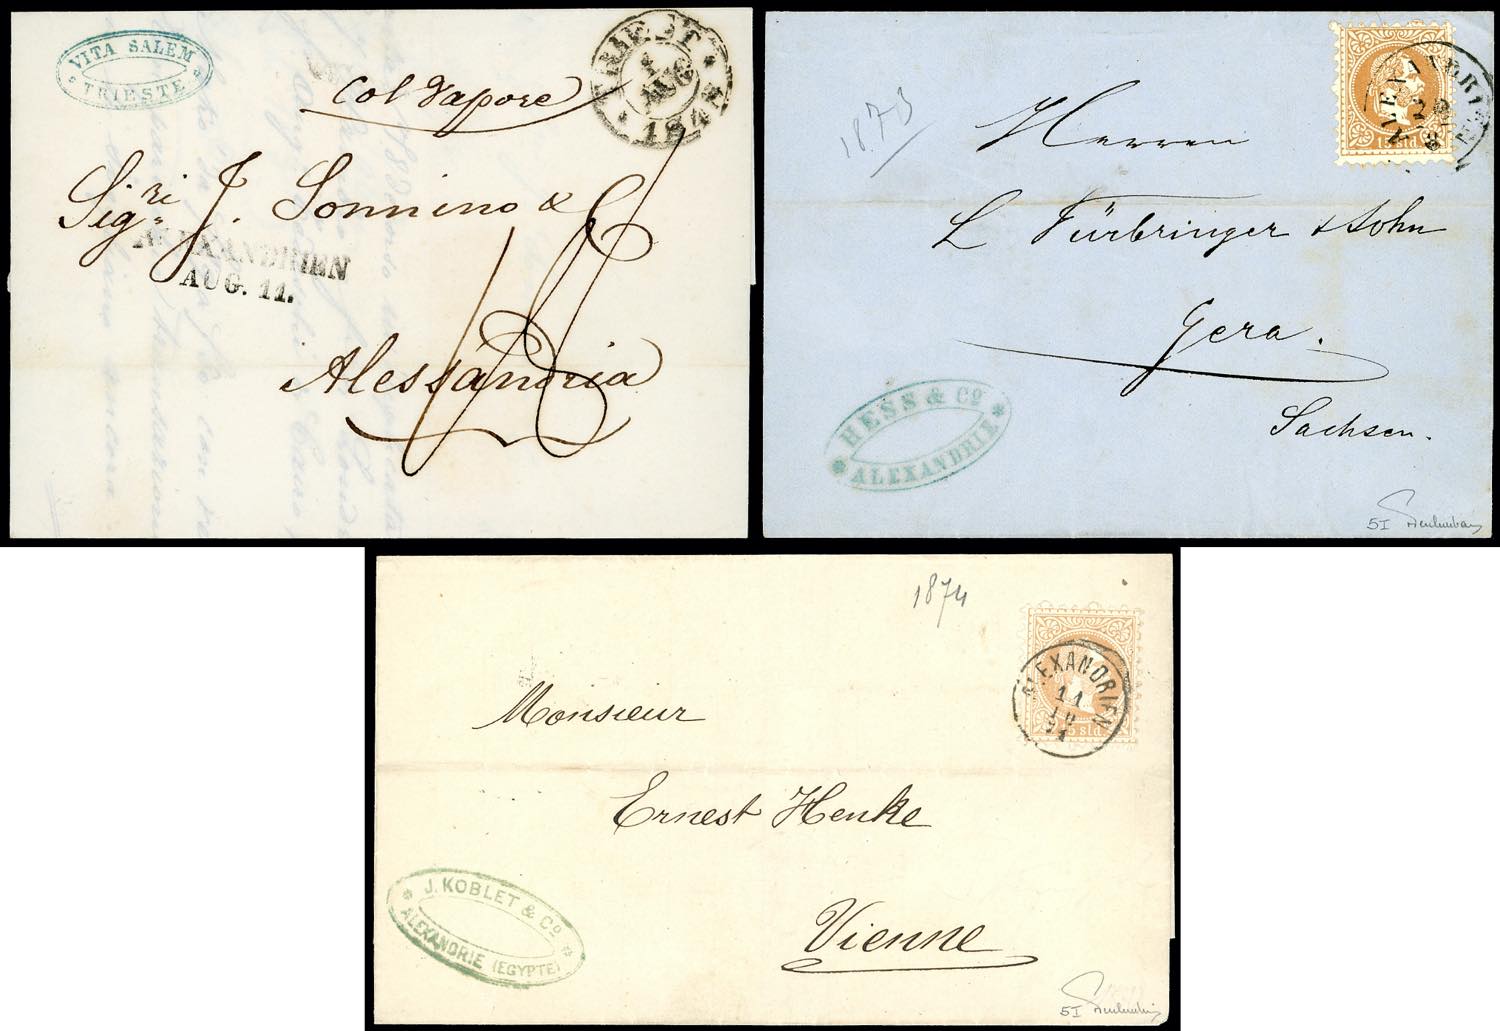 VITA SALEM
TRIESTE
TRIEST
AUG
Col Vapore
Sigri J. Sonnino & C
ALEXANDRIEN
AUG. 11.
Alessandria
1873
15 sld.
Herren
L Fürbringer & Sohn
Gera.
Sachsen.
HESS & Co
ALEXANDRIE
5I
1874
ALEXANDRIEN
11
10
5 sld.
Monsieur
Ernest Henke
Vienne
J. KOBLET & Co
ALEXANDRIE (EGYPTE)
5I